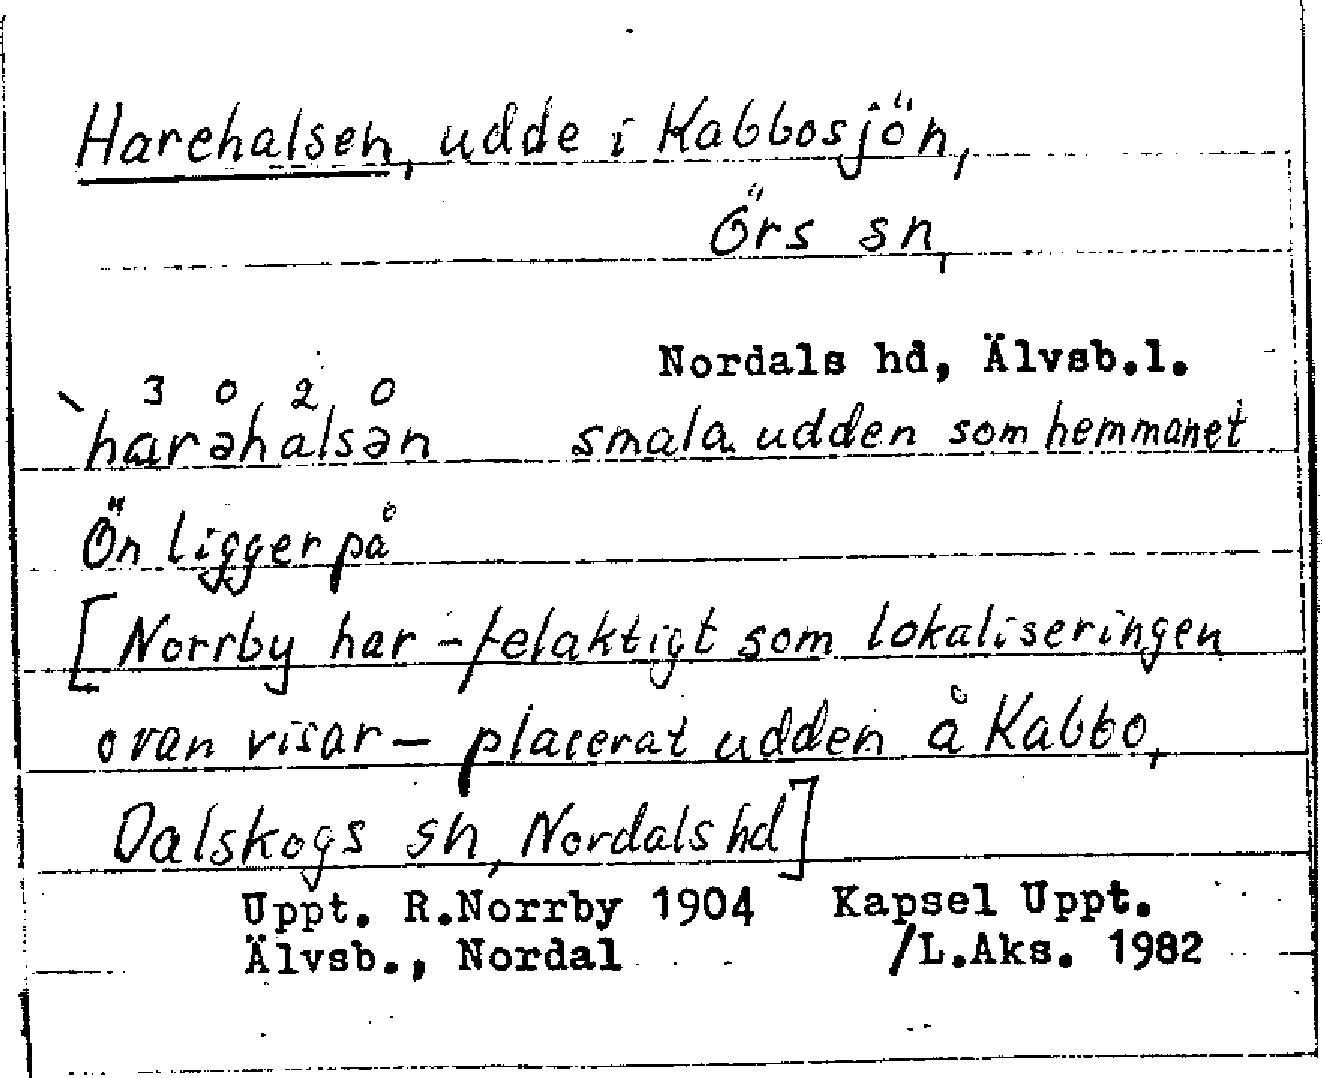 Harehalsen, udde i Kabbosjön,
Örs sn,
Nordals hd, Älvsb.l.
3 0 2 0
`harəhalsən smala udden som hemmanet
Ön ligger på
[Norrby har – felaktigt som lokaliseringen
ovan visar – placerat udden å Kabbo,
Dalskogs sn, Nordals hd]
Uppt. R.Norrby 1904 Kapsel Uppt.
Älvsb., Nordal /L.Aks. 1982